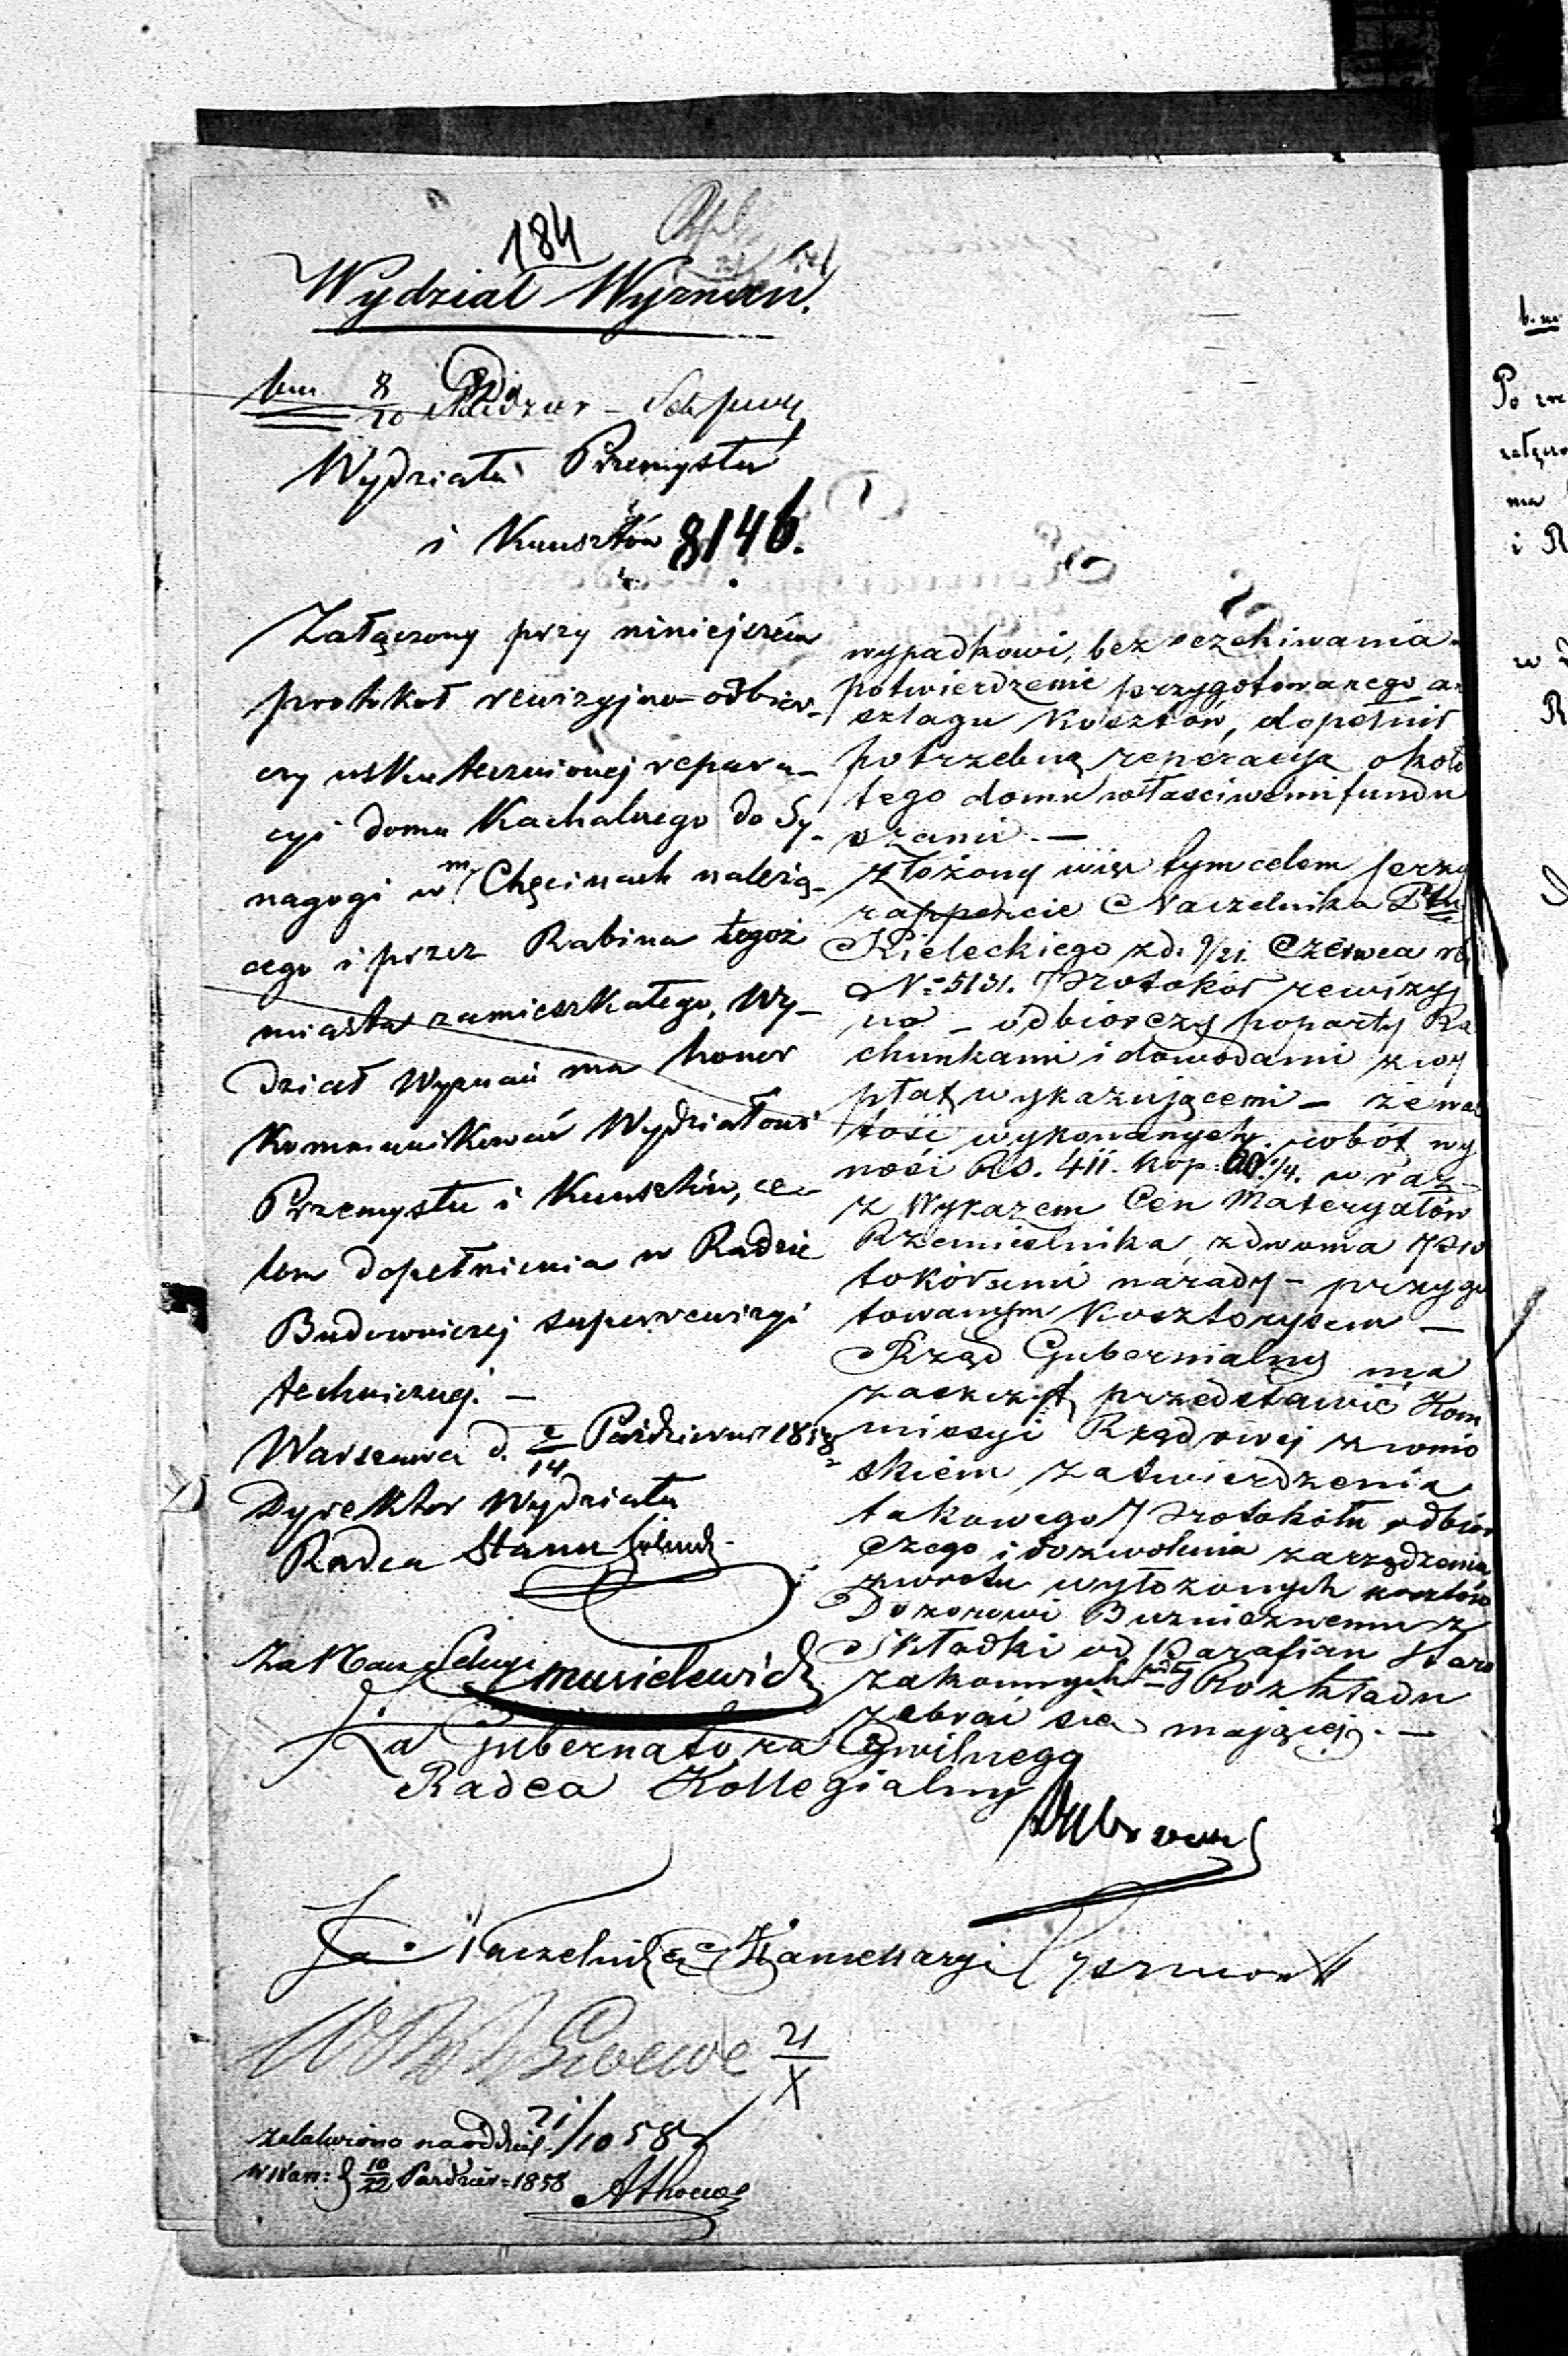 184
Wydział Wyznań.
8/20 Paździer
Wydziału Przemysłu
i Kunsztów 8146.
Załączony przy niniejszém
protokoł rewizyjno-odbior-
czy uskutecznionej repara-
cyi domu Kachalnego do Sy-
nagogi w m. Chęcinach należą-
cego i przez Rabina tegoż
miasta zamieszkałego, Wy-
dział Wyznań ma honor
kommunikować Wydziałowi
Przemysłu i Kunsztów, ce-
lem dopełnienia w Radzie
Budowniczej superrewizyi
technicznej. —
Warszawa d. 2/14 Października 1858
Dyrektor Wydziału
Radca Stanu
Za Nacz. Sekcyi
wypadkowi, bez oczekiwania
potwierdzenie przygotowanego an
szlagu Kosztów, dopełnił
potrzebną reperacyą około
tego domu własciwemi fundu
szami. —
Złożony więc tym celem przy
rapporcie Naczelnika Ptu
Kieleckiego z d. 9/21. Czerwca rb
No 5131. Protokół rewizyj
no - odbiorczy poparty Ra
chunkami i dowodami z wy
płat wykazującemi — że war
tość wykonanych robót wy
nosi Rs. 411. kop: 1/4. w raz
z Wykazem Cen Materyałów
Rzemieślnika, z dwoma Pro
tokółami narady - przygo
towanym Kosztorysem —
Rząd Gubernialny ma
zaszczyt przedstawić Kom
missyi Rządowej z wnio
skiem zatwierdzenia
takowego Protokółu odbior
czego i dozwolenia zarządzenia
zwrotu wyłożonych kosztów
Dozorowi Bużniczemu z
Składki od Parafian Staro
zakonnych Rozkładu
zebrać się mającej. —
Za Gubernatora Cywilnego
Radca Kollegialny
Za Naczelnika Kancellaryi
21/X
załatwiono 21/10 58
w War: d 10/22 Paździer: 1858
b. m
Po
ma
i R
w
R